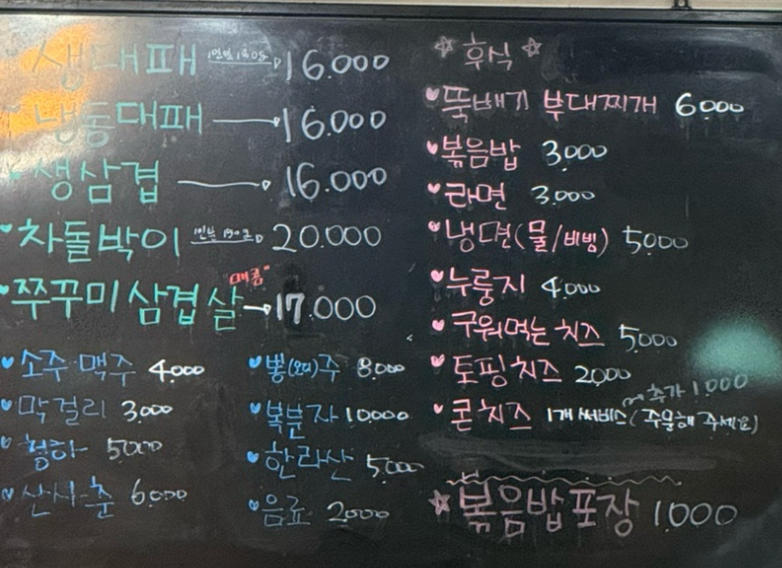 생대패 → 16.000
냉동대패 → 16.000
생삼겹 → 16.000
차돌박이 → 20.000
"매콤"
쭈꾸미삼겹살 → 17.000
소주·맥주 4.000
막걸리 3.000
청하 5000
산사춘 6.000
뽕(오디)주 8.000
복분자 10.000
한라산 5.000
음료 2000
☆ 후식 ☆
뚝배기 부대찌개 6.000
볶음밥 3.000
라면 3.000
냉면(물/비빔) 5000
누룽지 4.000
구워먹는치즈 5.000
토핑치즈 2.000
추가 1.000
콘치즈 1개 써비스(주문해 주세요)
☆볶음밥포장 1.000